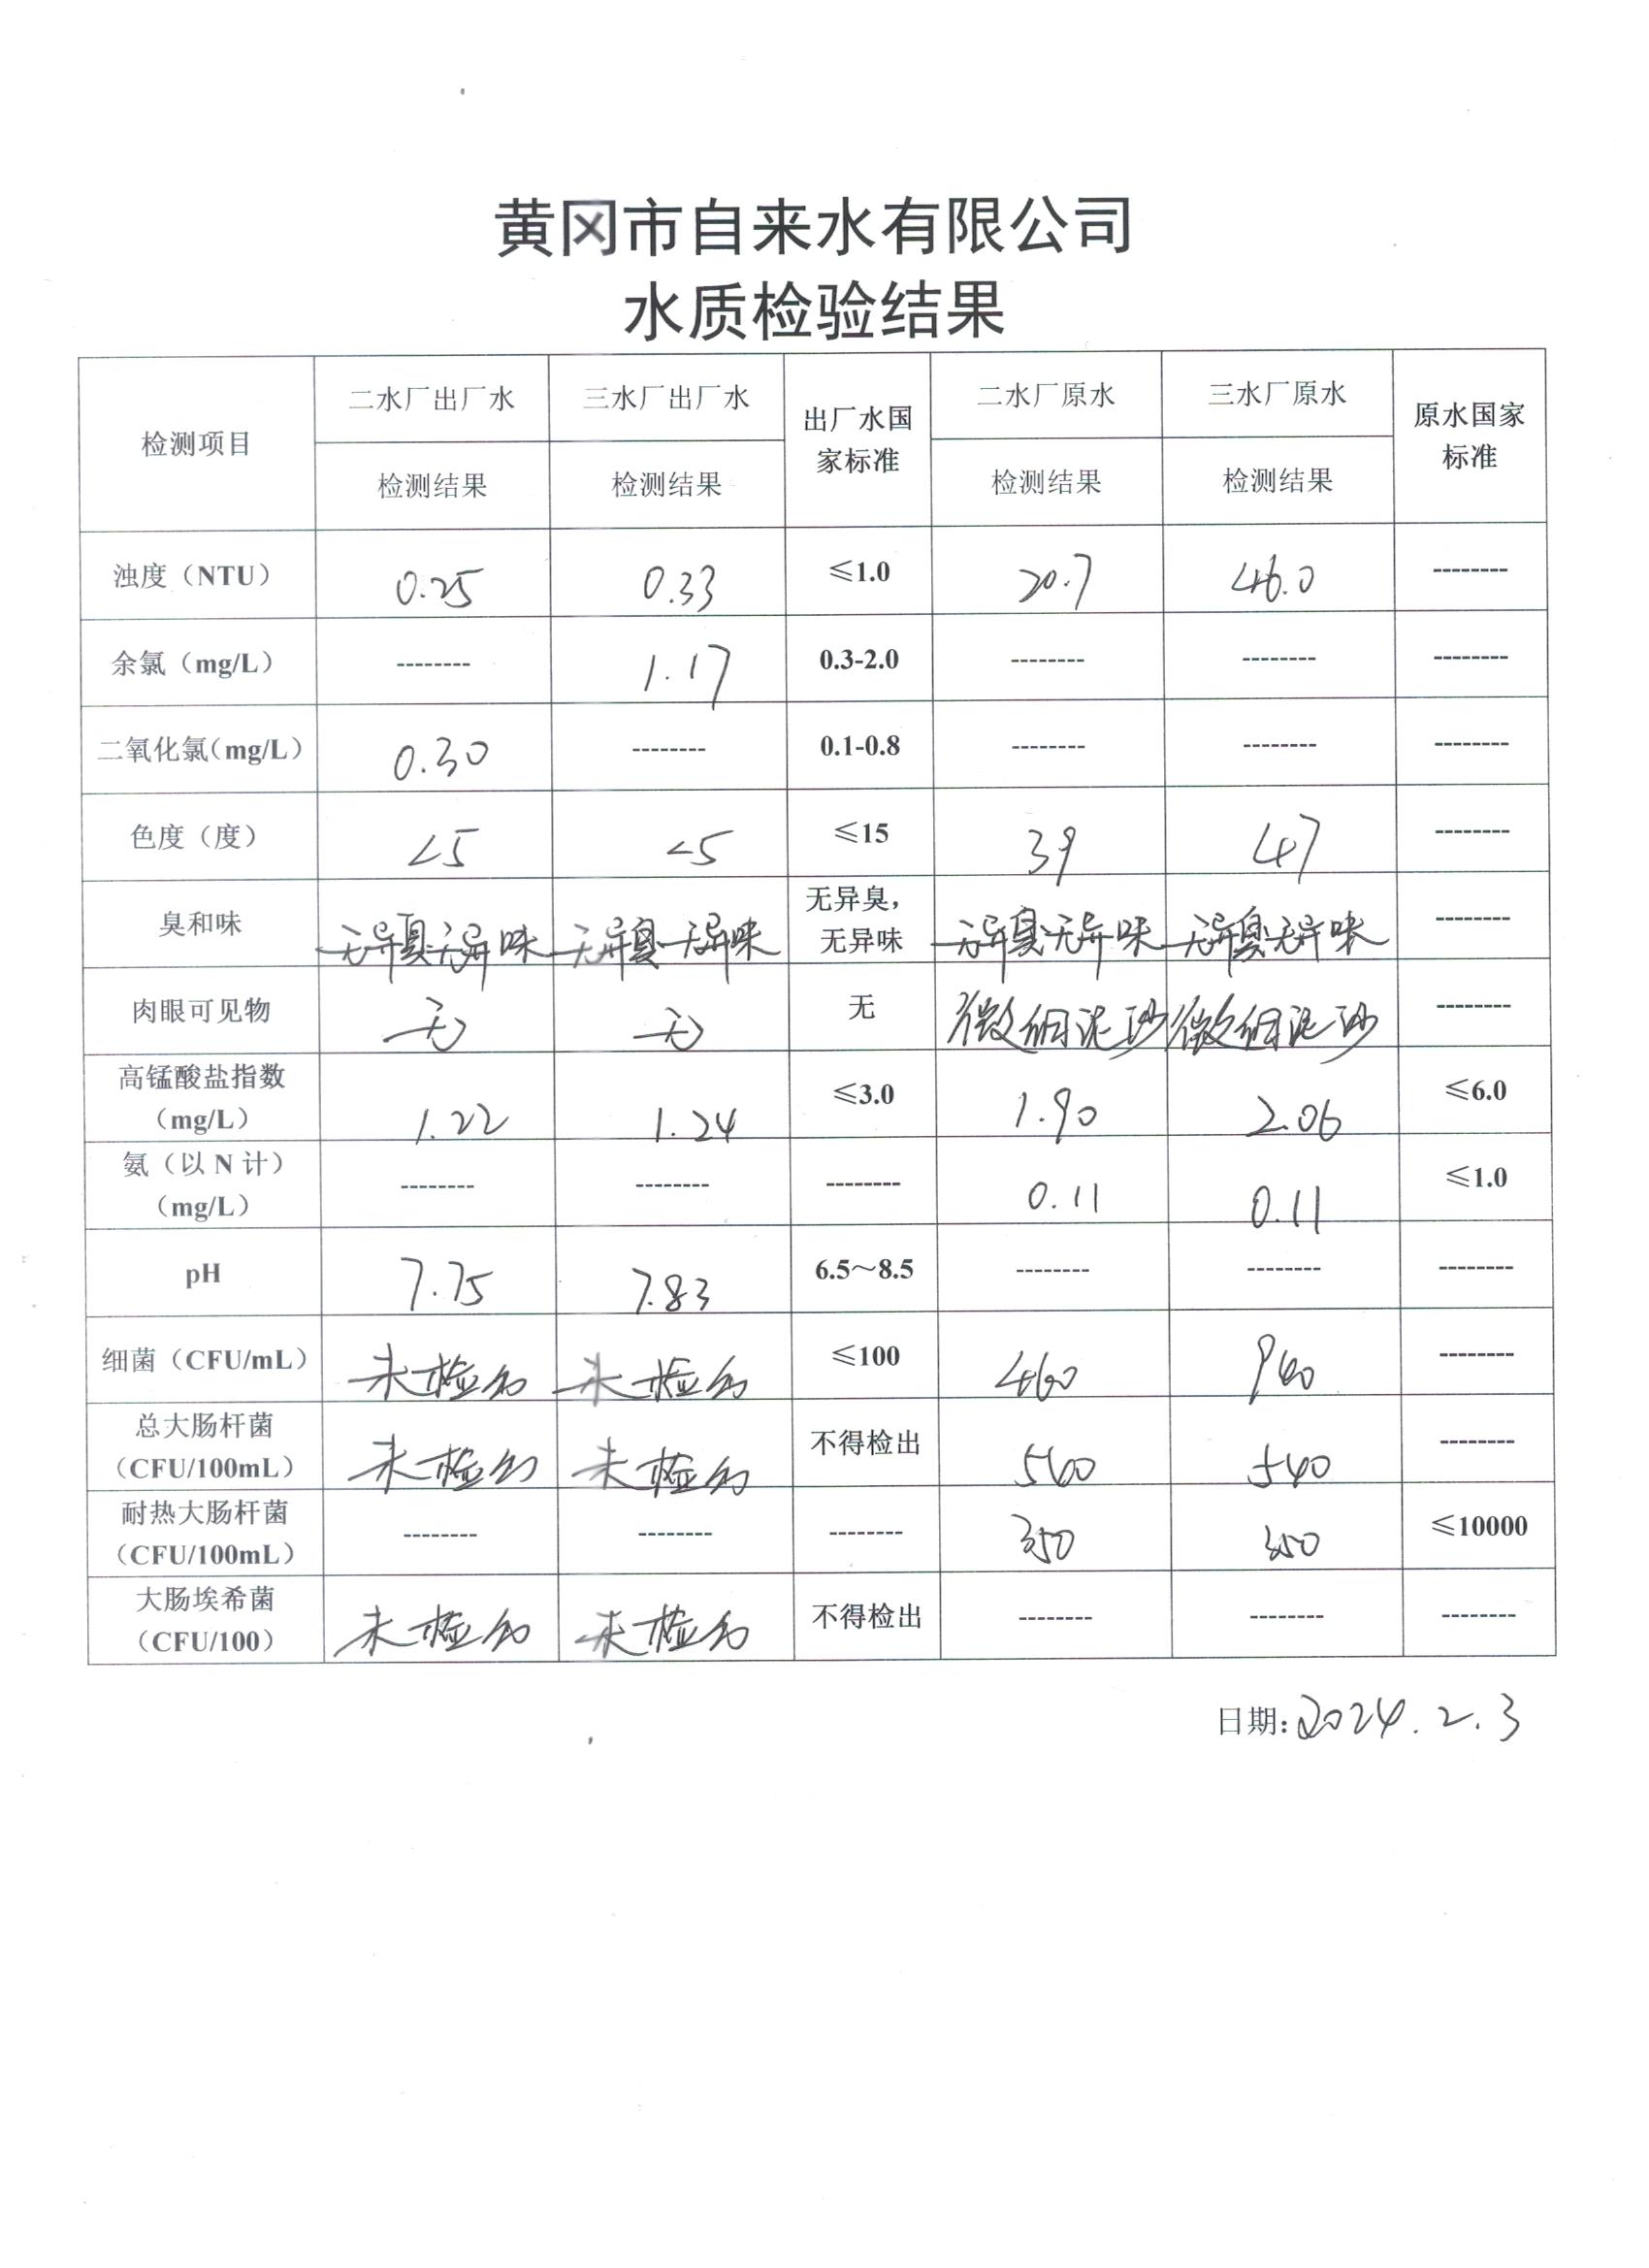 黄冈市自来水有限公司
水质检验结果
检测项目 二水厂出厂水 三水厂出厂水 出厂水国家标准 二水厂原水 三水厂原水 原水国家标准
检测结果 检测结果 检测结果 检测结果
浊度（NTU） 0.25 0.33 ≤1.0 20.7 46.0 --------
余氯（mg/L） -------- 1.17 0.3-2.0 -------- -------- --------
二氧化氯（mg/L） 0.30 -------- 0.1-0.8 -------- -------- --------
色度（度） <5 <5 ≤15 39 47 --------
臭和味 无异臭无异味 无异臭无异味 无异臭，无异味 无异臭无异味 无异臭无异味 --------
肉眼可见物 无 无 无 微细泥沙 微细泥沙 --------
高锰酸盐指数（mg/L） 1.22 1.24 ≤3.0 1.90 2.06 ≤6.0
氨（以 N 计）（mg/L） -------- -------- -------- 0.11 0.11 ≤1.0
pH 7.75 7.83 6.5～8.5 -------- -------- --------
细菌（CFU/mL） 未检出 未检出 ≤100 460 --------
总大肠杆菌（CFU/100mL） 未检出 未检出 不得检出 540 --------
耐热大肠杆菌（CFU/100mL） -------- -------- -------- 350 350 ≤10000
大肠埃希菌（CFU/100） 未检出 未检出 不得检出 -------- -------- --------
日期:2024.2.3